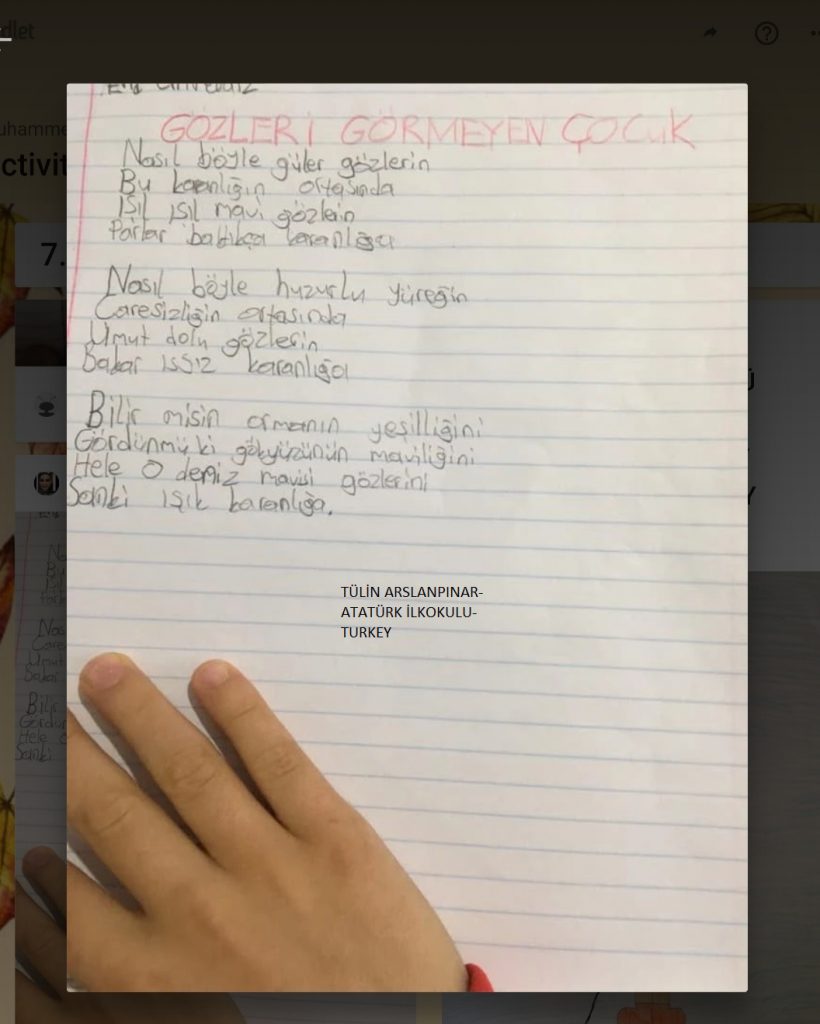 dlet
uhamme
ctivit
7.
GÖZLERİ GÖRMEYEN ÇOCUK
Nasıl böyle güler gözlerin
Bu karanlığın ortasında
Işıl ışıl mavi gözlein
Parlar baktıkça karanlığa
Nasıl böyle huzurlu yüreğin
Caresizliğin ortasında
Umut dolu gözlerin
Bakar ıssız karanlığa
Bilir misin ormanın yeşilliğini
Gördünmü ki gökyüzünün maviliğini
Hele o deniz mavisi gözlerini
Sanki ışık karanlığa.
TÜLİN ARSLANPINAR-
ATATÜRK İLKOKULU-
TURKEY